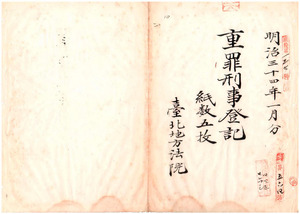 明治三十四年一月分
重罪刑事登記
紙数五枚
臺北地方法院